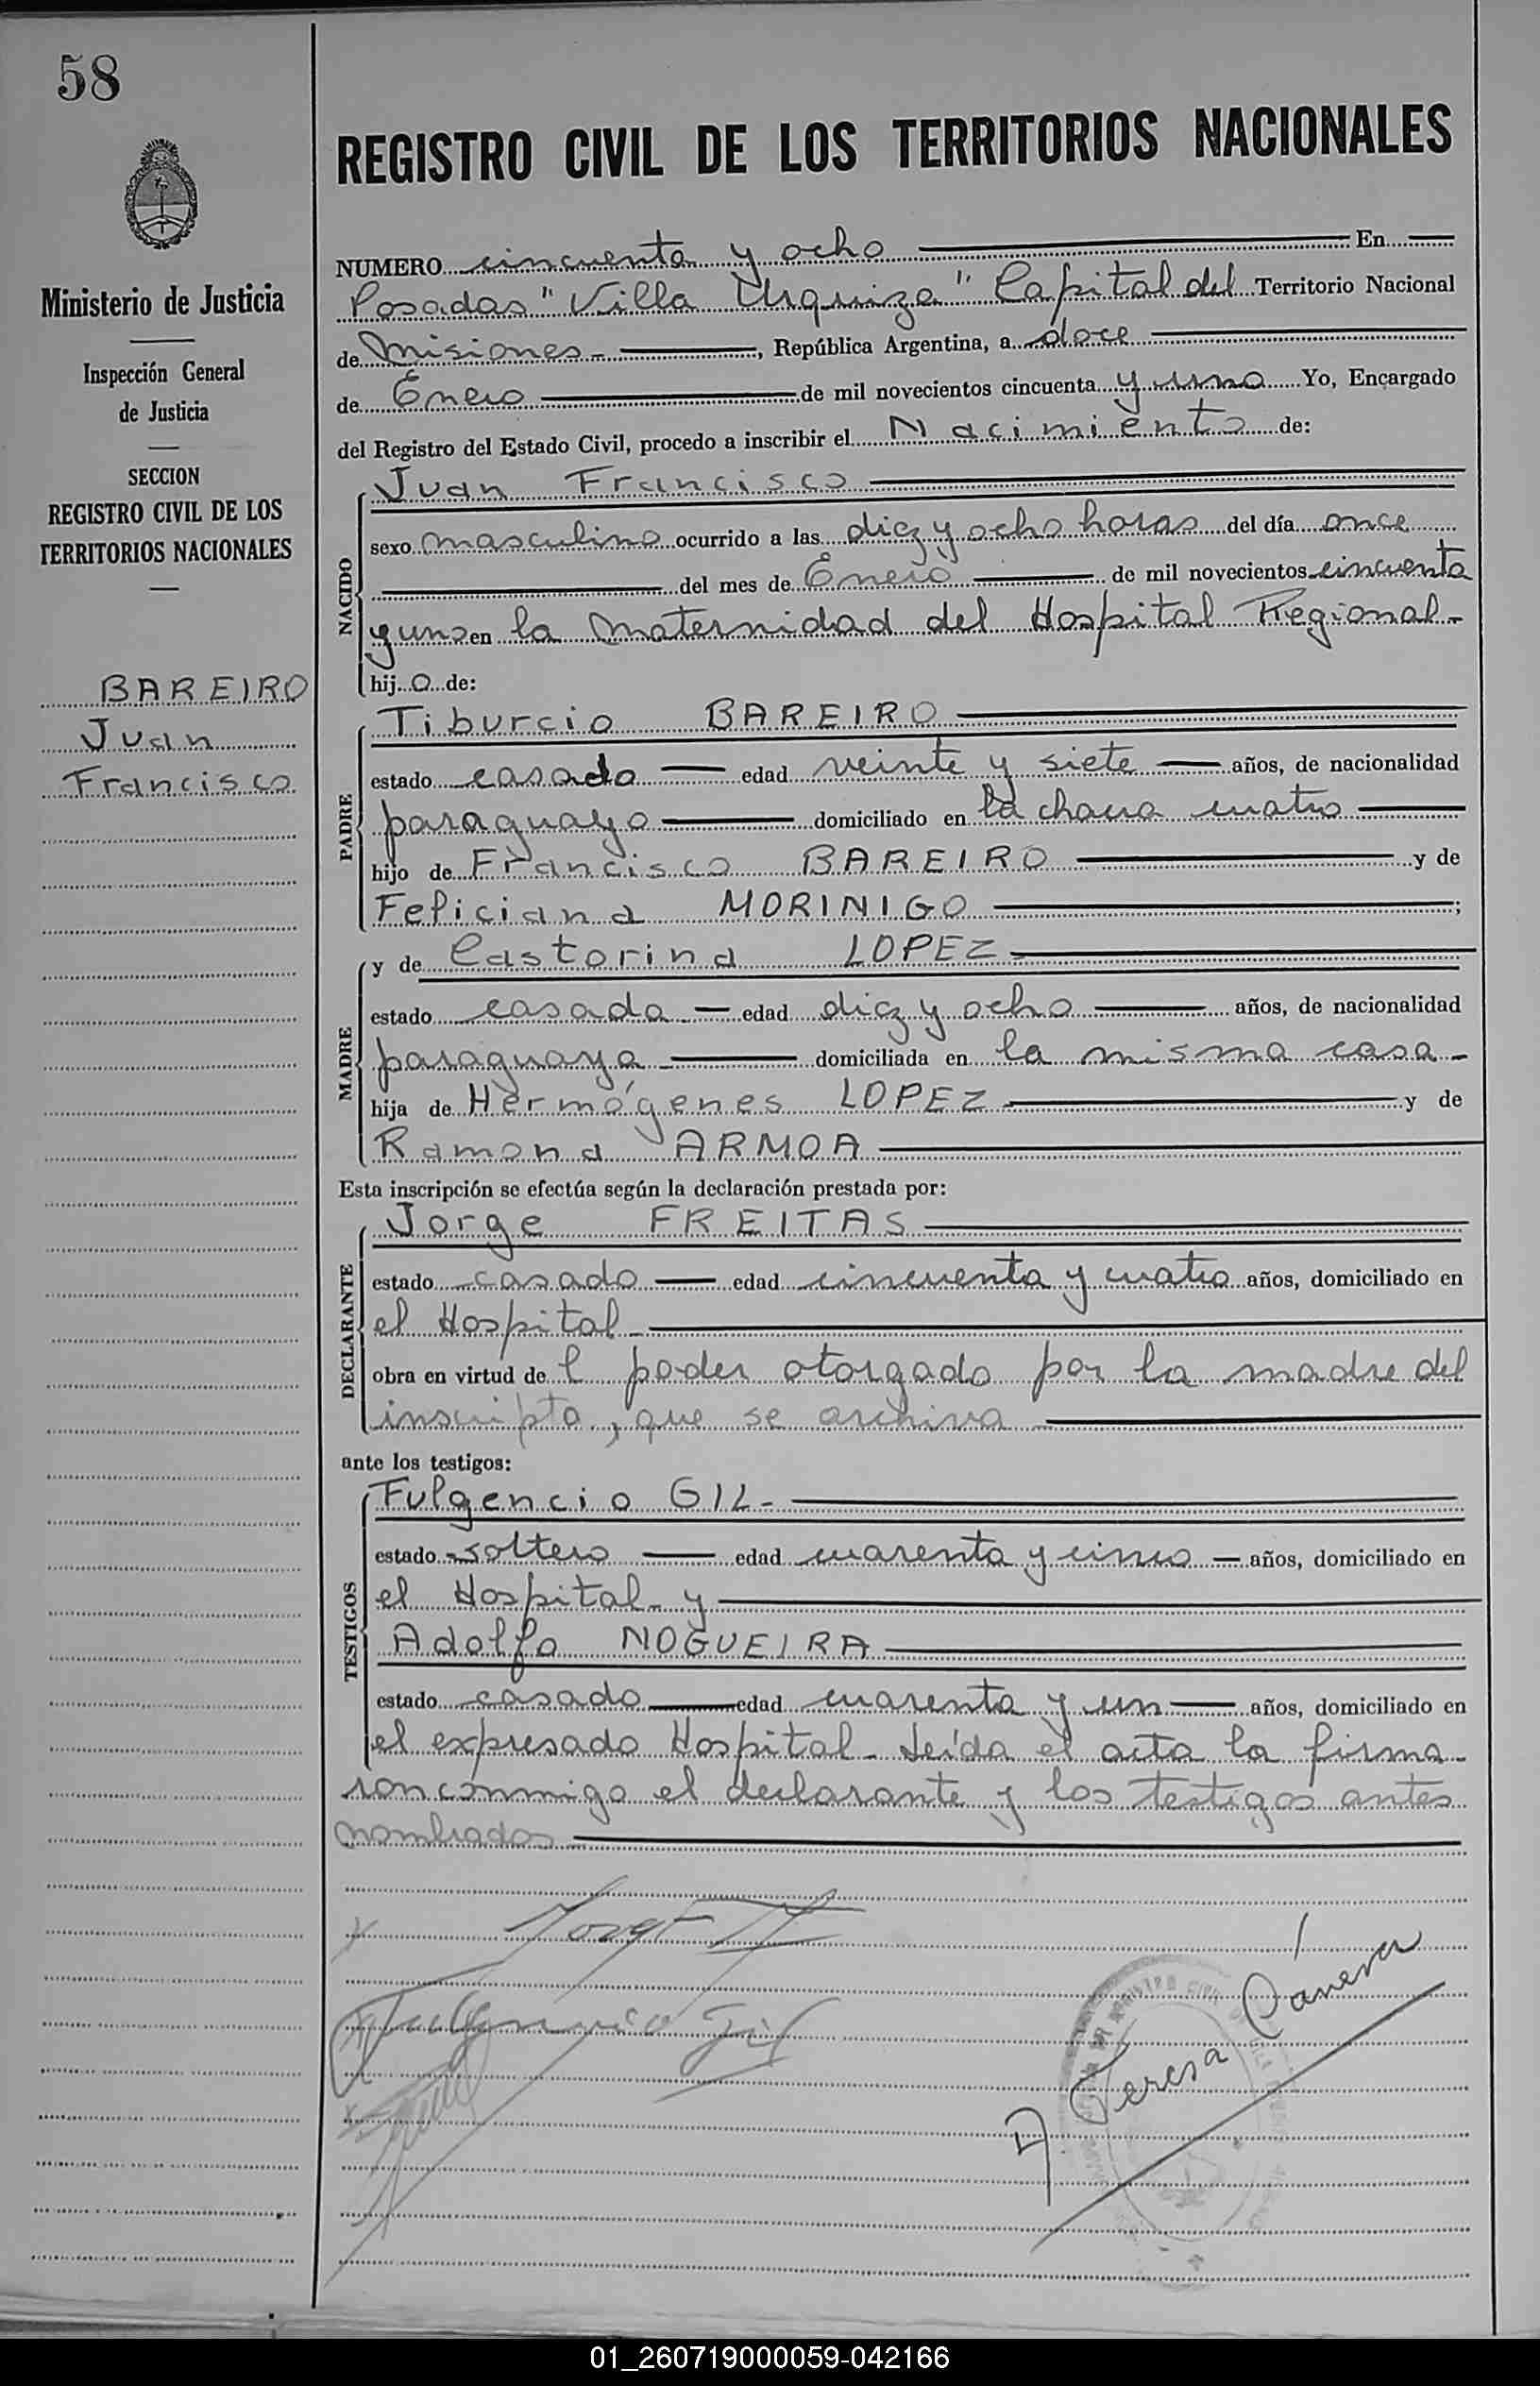 58
Ministerio de Justicia
Inspección General
de Justicia
SECCION
REGISTRO CIVIL DE LOS
TERRITORIOS NACIONALES
BAREIRO
Juan
Francisco
REGISTRO CIVIL DE LOS TERRITORIOS NACIONALES
NUMERO cincuenta y ocho En
Posadas "Villa Urquiza" Capital del Territorio Nacional
de Misiones- , República Argentina, a doce
de Enero de mil novecientos cincuenta y uno Yo, Encargado
del Registro del Estado Civil, procedo a inscribir el Nacimiento de:
NACIDO
Juan Francisco
sexo masculino ocurrido a las diez y ocho horas del día once
del mes de Enero de mil novecientos cincuenta
y uno en la Maternidad del Hospital Regional-
hijo de:
PADRE
Tiburcio BAREIRO
estado casado edad veinte y siete años, de nacionalidad
paraguayo domiciliado en la chacra cuatro
hijo de Francisco BAREIRO y de
Feliciana MORINIGO ;
MADRE
y de Castorina LOPEZ
estado casada edad diez y ocho años, de nacionalidad
paraguaya domiciliada en la misma casa-
hija de Hermógenes LOPEZ y de
Ramona ARMOA
Esta inscripción se efectúa según la declaración prestada por:
DECLARANTE
Jorge FREITAS
estado casado edad cincuenta y cuatro años, domiciliado en
el Hospital-
obra en virtud de l poder otorgado por la madre del
inscripto, que se archiva
ante los testigos:
TESTIGOS
Fulgencio GIL-
estado soltero edad cuarenta y cinco años, domiciliado en
el Hospital- y
Adolfo NOGUEIRA
estado casado edad cuarenta y un años, domiciliado en
el expresado Hospital- Leída el acta la firma-
ron conmigo el declarante y los testigos antes
nombrados
Fulgencio Gil
A. Teresa Cáneva
01_260719000059-042166